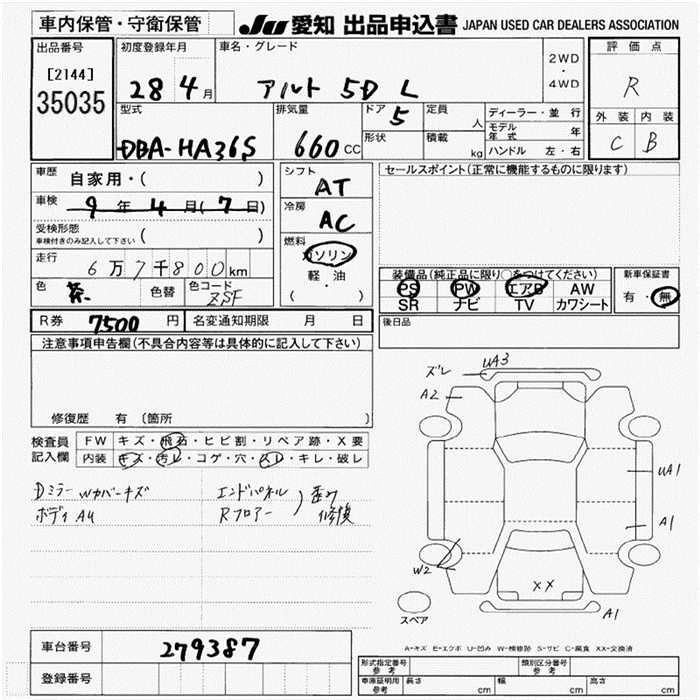 車内保管・守衛保管
JU 愛知 出品申込書 JAPAN USED CAR DEALERS ASSOCIATION
出品番号
[2144]
35035
初度登録年月
28 4月
車名・グレード
アルト 5D L
2WD
・
4WD
評価点
R
外装 内装
C B
型式
DBA-HA36S
排気量
660cc
ドア 5
形状
定員 人
積載 kg
ディーラー・並行
モデル年式 年
ハンドル 左・右
車歴 自家用・( )
車検 9年4月(7日)
受検形態
車検付きのみ記入して下さい ( )
走行
6万7千800km
色 茶
色替
色コード
ZSF
シフト
AT
冷房
AC
燃料
ガソリン
軽・油
( )
セールスポイント(正常に機能するものに限ります)
装備品(純正品に限り○をつけてください)
PS PW エアB AW
SR ナビ TV カワシート
新車保証書
有・無
R券 7500円 名変通知期限 月 日
後日品
注意事項申告欄(不具合内容等は具体的に記入して下さい)
修復歴 有 〔箇所
検査員
記入欄
FW キズ・飛石・ヒビ割・リペア跡・X要
内装 キズ・汚レ・コゲ・穴・スレ・キレ・破レ
Dミラー Wカバーキズ
ボディ A4
エンドパネル
Rフロアー
) 歪み
修復
ズレ
UA3
A2
UA1
A1
W2
XX
A1
スペア
A-キズ E-エクボ U-凹み W-補修跡 S-サビ C-腐食 XX-交換済
車台番号 279387
登録番号
形式指定番号
参考
類別区分番号
参考
車庫証明用
参考
長さ cm 幅 cm 高さ cm